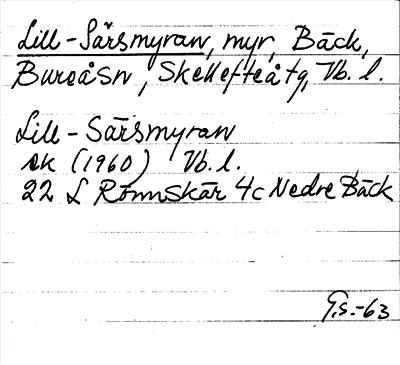 Lill-Särsmyran, myr, Bäck,
Bureå sn, Skellefteå tg, Vb. l.
Lill-Särsmyran
ek (1960) Vb. l.
22 L Rönnskär 4c Nedre Bäck
G.s.-63